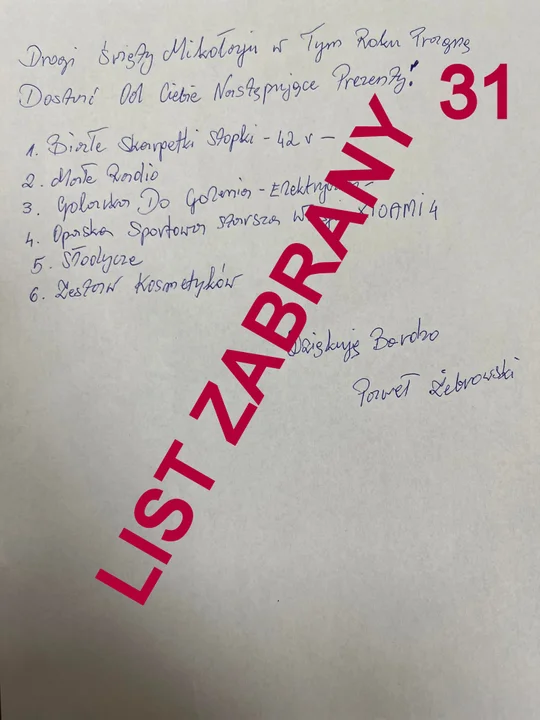 Drogi Święty Mikołaju w Tym Roku Pragnę
Dostać Od Ciebie Następujące Prezenty!
31
1. Białe Skarpetki Stopki - 42 r -
2. Małe Radio
3. Golarka Do Golenia - Elektryczna -
4. Opaska Sportowa starsza XIOAMI 4
5. Słodycze
6. Zestaw Kosmetyków
Dziękuję Bardzo
Paweł Żebrowski
LIST ZABRANY